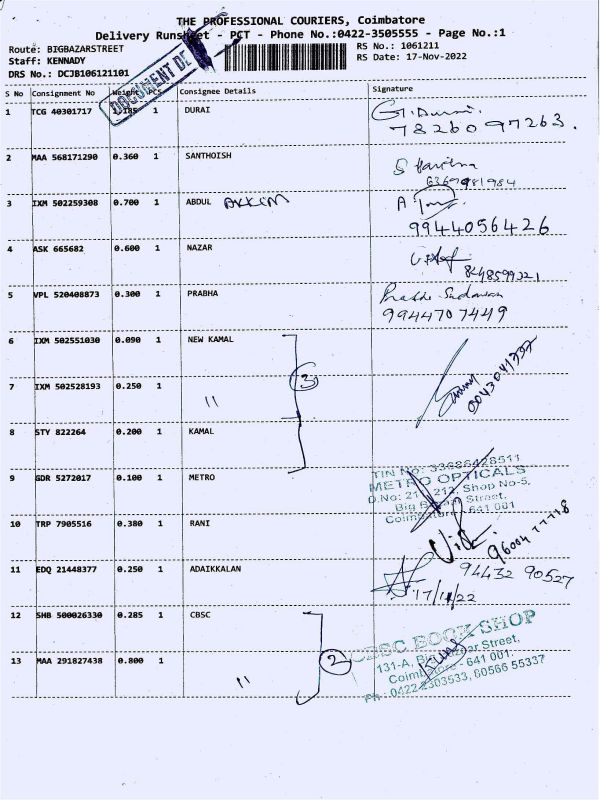 THE PROFESSIONAL COURIERS, Coimbatore
Delivery Runsheet - PCT - Phone No.:0422-3505555 - Page No.:1
Route: BIGBAZARSTREET RS No.: 1061211
Staff: KENNADY RS Date: 17-Nov-2022
DRS No.: DCJB106121101
DOCUMENT DE
S No Consignment No Weight Pcs Consignee Details Signature
1 TCG 40301717 1.185 1 DURAI
78260 97263.
2 MAA 568171290 0.360 1 SANTHOISH
6369981984
3 IXM 502259308 0.700 1 ABDUL
9944056426
4 ASK 665682 0.600 1 NAZAR
8248599221
5 VPL 520408873 0.300 1 PRABHA
9944707449
6 IXM 502551030 0.090 1 NEW KAMAL
3
7 IXM 502528193 0.250 1 "
8 STY 822264 0.200 1 KAMAL
9 GDR 5272017 0.100 1 METRO
TIN No: 33686428511
METRO OPTICALS
D.No: 21 212, Shop No-5,
Big Street,
Coimbatore 641 001
10 TRP 7905516 0.380 1 RANI
96004 77718
11 EDQ 21448377 0.250 1 ADAIKKALAN
94432 90527
17/11/22
12 SHB 500026330 0.285 1 CBSC
CBSC BOOK SHOP
131-A, Big Bazaar Street,
Coimbatore - 641 001.
Ph : 0422 2303533, 80566 55337
2
13 MAA 291827438 0.800 1 "